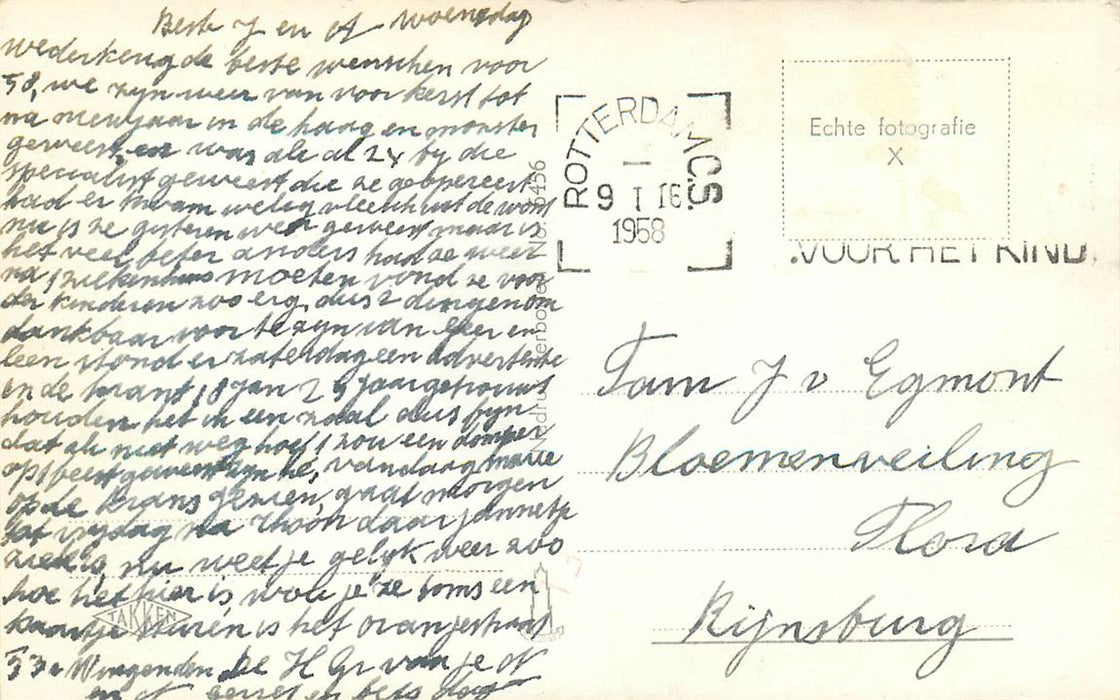 Beste J en of woensdag
wederkeerig de beste wenschen voor
58, we zijn weer van voor kerst tot
na nieuwjaar in de haag en monster
geweest, was als al 24 by die
specialist geweest die ze geopereert
had er kwam weleg vleesch uit de wond
nu is ze gisteren weer geweest maar is
het veel beter anders had ze weer
na 't ziekenhuis moeten vond ze voor
de kinderen zoo erg, dus 2 dingen om
dankbaar voor te zyn van
leen stond er zaterdag een advertentie
in de krant, 18 jan 25 jaar getrouwt
houden het in een zaal dus fyn
dat als niet weg hoeft zou een domper
op 't feest geweest zyn he, vandaag marie
op de krans gezien, gaat morgen
tot vrydag na Rhoon daar jannetje
ziek is, nu weet je gelyk weer zoo
hoe het hier is wou je ze soms een
kaartje sturen is het oranjestraat
53 De H Gr van je
en of
ROTTERDAM C.S.
9 I 16
1958
VOOR HET KIND
Echte fotografie
X
Fam J v Egmont
Bloemenveiling
Flora
Rijnsburg
TAKKEN